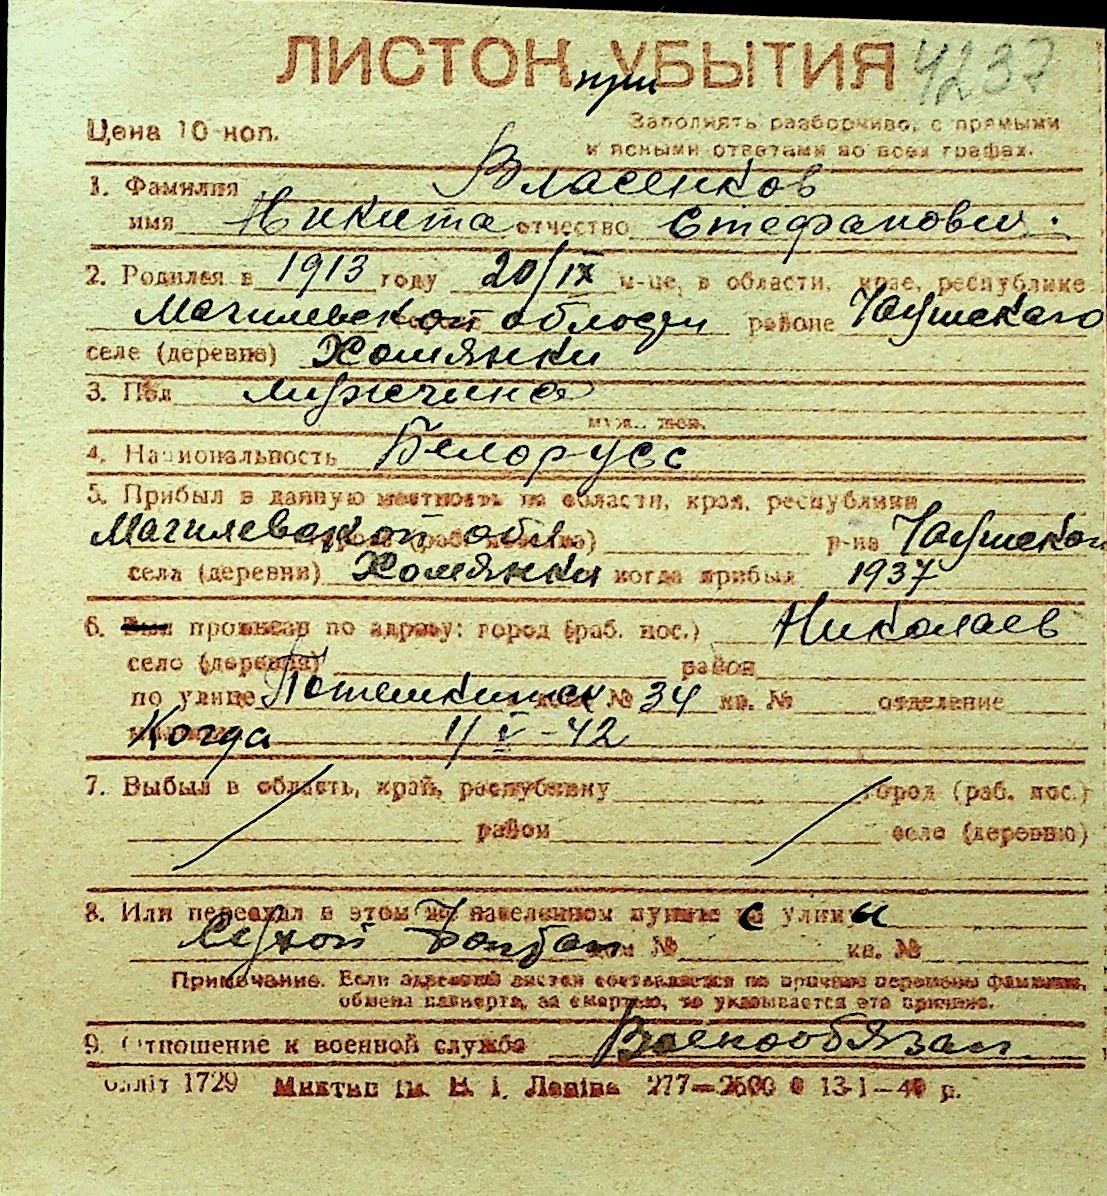 ЛИСТОК УБЫТИЯ 4237
при
Цена 10 коп. Заполнять разборчиво, с прямыми
и ясными ответами во всех графах.
1. Фамилия Власенков
имя Никита отчество Стефанович.
2. Родился в 1913 году 20/IX м-це, в области, крае, республике
Магилевской области районе Чаушскаго
селе (деревне) Хомянки
3. Пол мужчина
муж., жен.
4. Национальность Белорусс
5. Прибыл в данную местность из области, края, республики
Магилевской обл р-на Чаушског
села (деревни) Хомянки когда прибыл 1937
6. проживал по адресу: город (раб. пос.) Николаев
село (деревня) район
по улице Потемкинск № 34 кв. № отделение
Когда 1/V-42
7. Выбыл в область, край, республику город (раб. пос.)
район село (деревню)
8. Или переехал в этом же населенном пункте с улицы
дом № кв. №
Примечание. Если адресный листок составляется по причине перемены фамилии,
обмена паспорта, за смертью, то указывается эта причина.
9. Отношение к военной службе Военообязан
1729 Миктип ім. В. І. Леніна 277—2500 13-1—40 р.